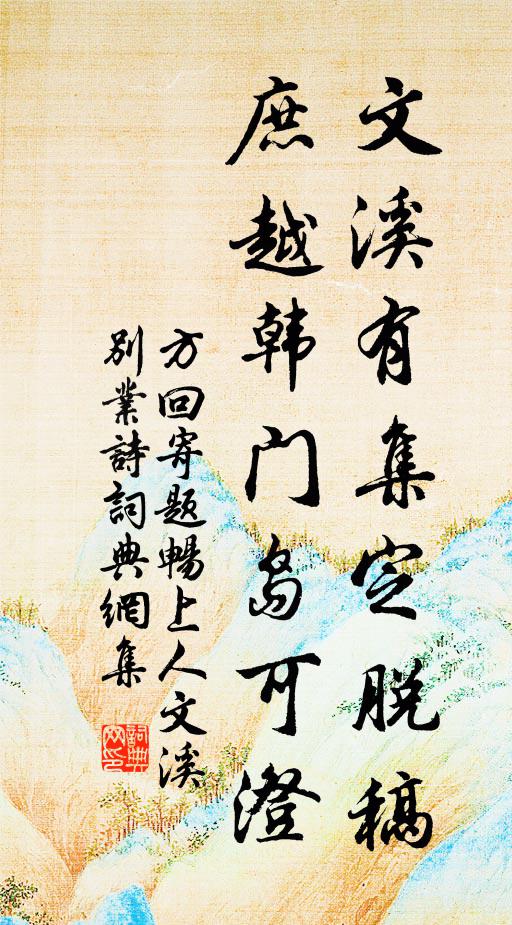 文溪有集定脱稿
庶越韩门岛可澄
方回寄题暢上人文溪
别業詩詞典網集
詞典
网印